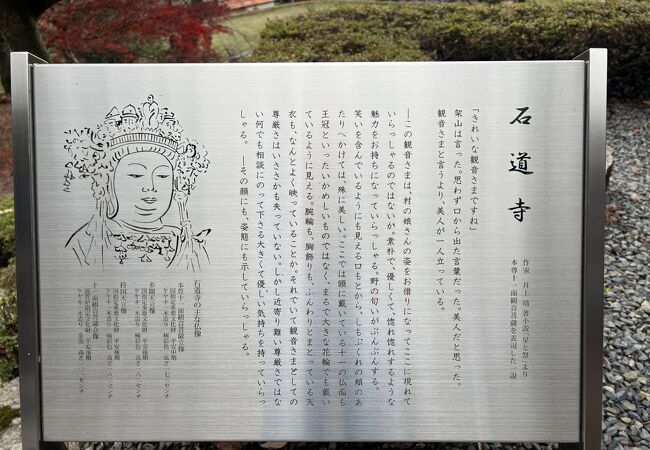 石道寺
作家 井上 靖 著小説「星と祭」より
本尊十一面観音菩薩を表現した一説
「きれいな観音さまですね」
架山は言った。思わず口から出た言葉だった。美人だと思った。
観音さまと言うより、美人が一人立っている。
―この観音さまは、村の娘さんの姿をお借りになってここに現れて
いらっしゃるのではないか。素朴で、優しくて、惚れ惚れするような
魅力をお持ちになっていらっしゃる。野の匂いがぷんぷんする。
笑いを含んでいるようにも見える口もとから、しもぶくれの頬のあ
たりへかけては、殊に美しい。ここでは頭に戴いている十一の仏面も
王冠といったいかめしいものではなく、まるで大きな花輪でも戴い
ているように見える。腕輪も、胸飾りも、ふんわりとまとっている天
衣も、なんとよく映っていることか。それでいて観音さまとしての
尊厳さはいささかも失っていない。しかし近寄り難い尊厳さではな
い何でも相談にのって下さる大きくて優しい気持ちを持っていらっ
しゃる。 ―その顔にも、姿態にも示していらっしゃる。
石道寺の主な仏像
本尊十一面観音菩薩立像
国指定重要文化財 平安中期
ケヤキ 一木造り 極彩色 高さ
多聞天立像
国指定重要文化財 平安後期
ケヤキ 一木造り 極彩色 高さ
持国天立像
国指定重要文化財 平安後期
ケヤキ 一木造り 極彩色 高さ
十一面観音菩薩立像
高さ